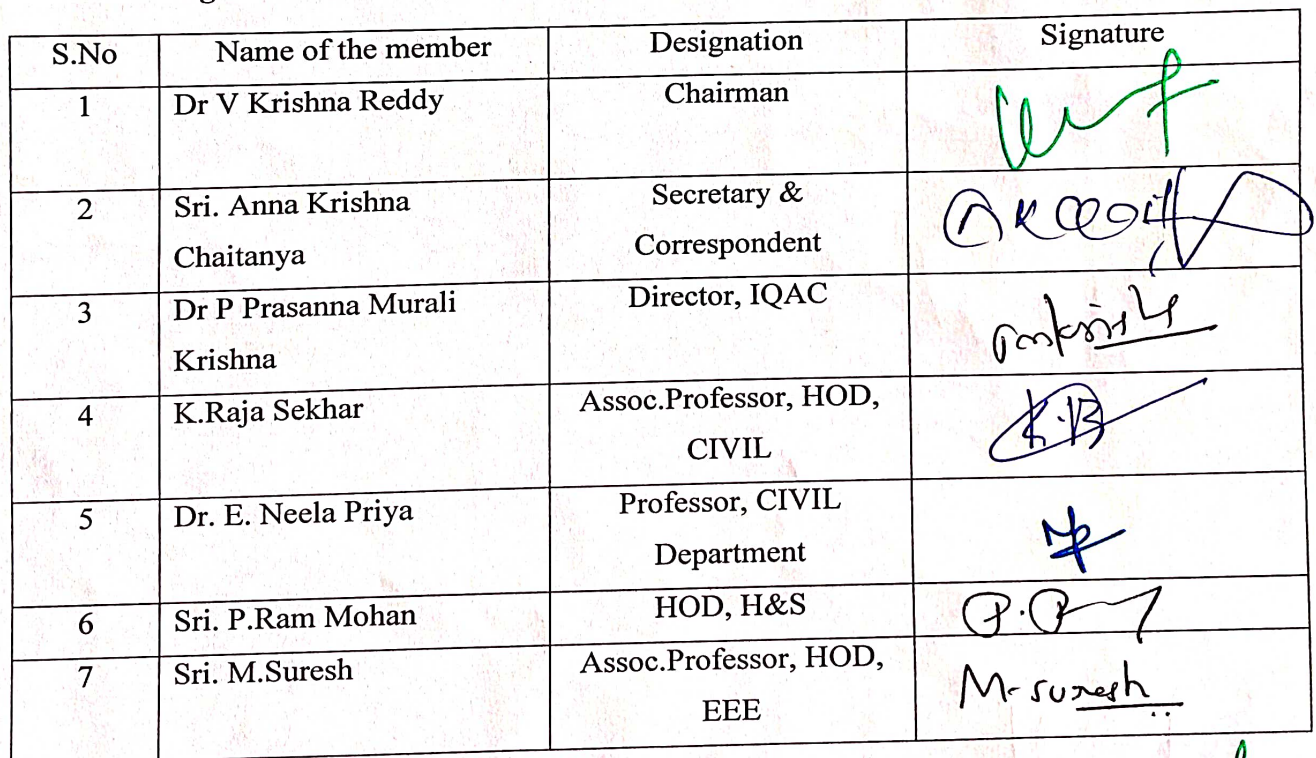 S.No Name of the member Designation Signature
1 Dr V Krishna Reddy Chairman
2 Sri. Anna Krishna Secretary &
Chaitanya Correspondent
3 Dr P Prasanna Murali Director, IQAC
Krishna
4 K.Raja Sekhar Assoc.Professor, HOD,
CIVIL
5 Dr. E. Neela Priya Professor, CIVIL
Department
6 Sri. P.Ram Mohan HOD, H&S
7 Sri. M.Suresh Assoc.Professor, HOD, M. suresh
EEE